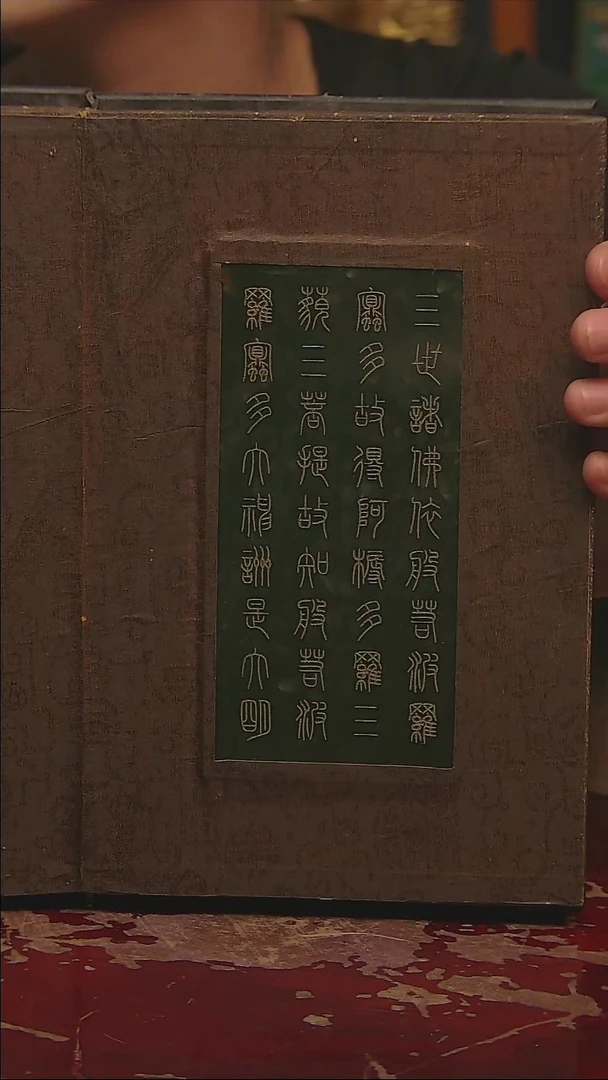 三世諸佛依般若波羅
蜜多故得阿耨多羅三
藐三菩提故知般若波
羅蜜多大神咒是大明